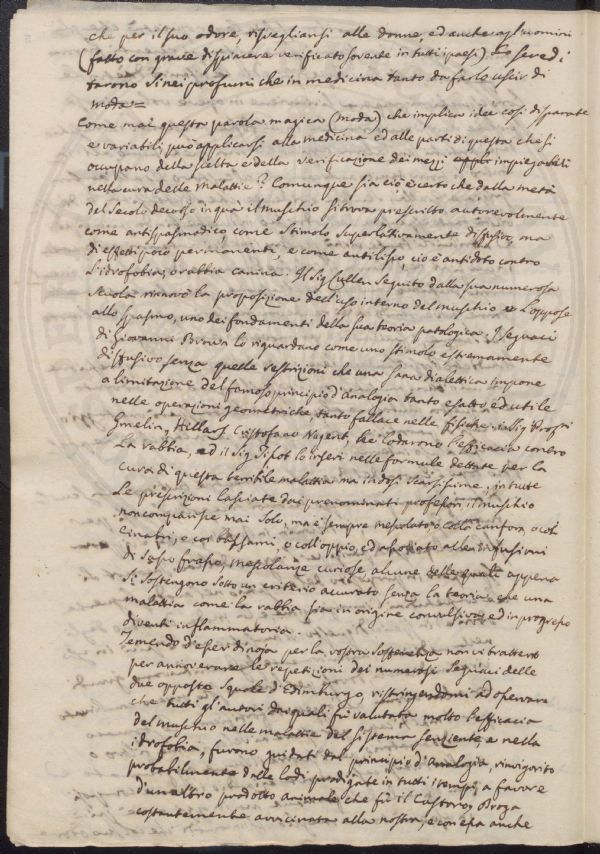 che per il suo odore, risvegliarsi alle donne, ed anche agl'uomini
(fatto con grave dispiacere verificato sovente in tutti i paesi) lo scredi
tarono sì nei profumi che in medicina tanto da farlo uscir di
moda =
Come mai questa parola magica (moda) che implica idee così disparate
e variabili può applicarsi alla medicina ed alle parti di questa che si
occupano della scelta e della verificazione dei mezzi impiegabili
nella cura delle malattie? Comunque sia ciò, è certo che dalla metà
del Secolo decorso in quà il muschio si trova prescritto autorevolmente
come antispasmodico, come stimolo superlativamente diffusivo, ma
di effetti poco permanenti, e come antilisso, cioè antidoto contro
l'idrofobia, o rabbia canina. Il Sig Cullen seguito dalla sua numerosa
scuola rinnovò la proposizione dell'uso interno del muschio e l'oppose
allo spasmo, uno dei fondamenti della sua teoria patologica. I seguaci
di Giovanni Brown lo riguardano come uno stimolo estremamente
diffusivo senza quelle restrizioni che una sana dialettica impone
a limitazione del famoso principio d'Analogia tanto esatto ed utile
nelle operazioni geometriche tanto fallace nelle fisiche. i Sig
Gmelin, Hillary Cristofano Nugent, ne lodarono l'efficacia contro
la rabbia, ed il Sig Tissot lo inserì nelle formule dettate per la
cura di questa terribile malattia ma in dosi scarsissime, in tutte
le prescrizioni lasciate dai prenominati professori, il muschio
non comparisce mai solo, ma è sempre mescolato o colla canfora, o col
cinabri, e coi balsami o coll'oppio, ed associato alle infusioni
di Sassofrasso, mescolanze curiose, alcune delle quali appena
si sostengono sotto un criterio accurato senza la teoria che una
malattia come la rabbia sia in origine convulsiva, ed in progresso
diventi inflammatoria.
Temendo d'esser di noja per la vostra sofferenza non ci tratterò
per annoverare le repetizioni dei numerosi seguaci delle
due opposte Squole d'Edimburgo, ristringendomi ad osservare
che tutti gl'autori dai quali fù valutata molto l'efficacia
del muschio nelle malattie del sistema senziente, e nella
idrofobia, furono guidati dal principio d'analogia, rinvigorito
probabilmente dalle lodi prodigate in tutti i tempi, a favore
d'un altro prodotto animale che fù il Castoro, Droga
costantemente avvicinata alla nostra, e con essa anche